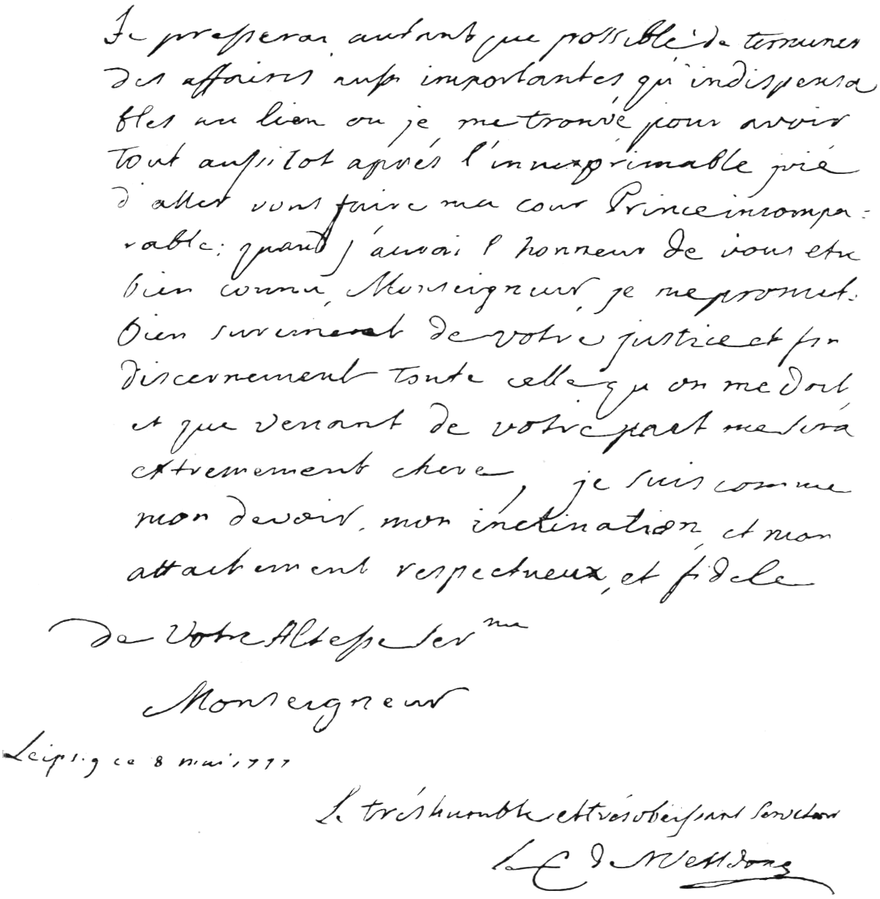 Je presserai autant que possible de terminer
des affaires aussi importantes qu'indispensa
bles au lieu ou je me trouve pour avoir
tout aussitot aprés l'innexprimable joié
d'aller vous faire ma cour Prince incompa:
rable: quand j'aurai l honneur de vous etre
bien connu, Monseigneur, je me promet:
bien surement de votre justice et fin
discernement toute celle qu on me doit,
et que venant de votre part me sera
extremement chere, je suis comme
mon devoir, mon inclination, et mon
attachement respectueux, et fidele
de Votre Altesse Ser me
Monseigneur
Leipsig ce 8 mai 1777
Le trés humble et trés obeissant Serviteur
le C de Welldone